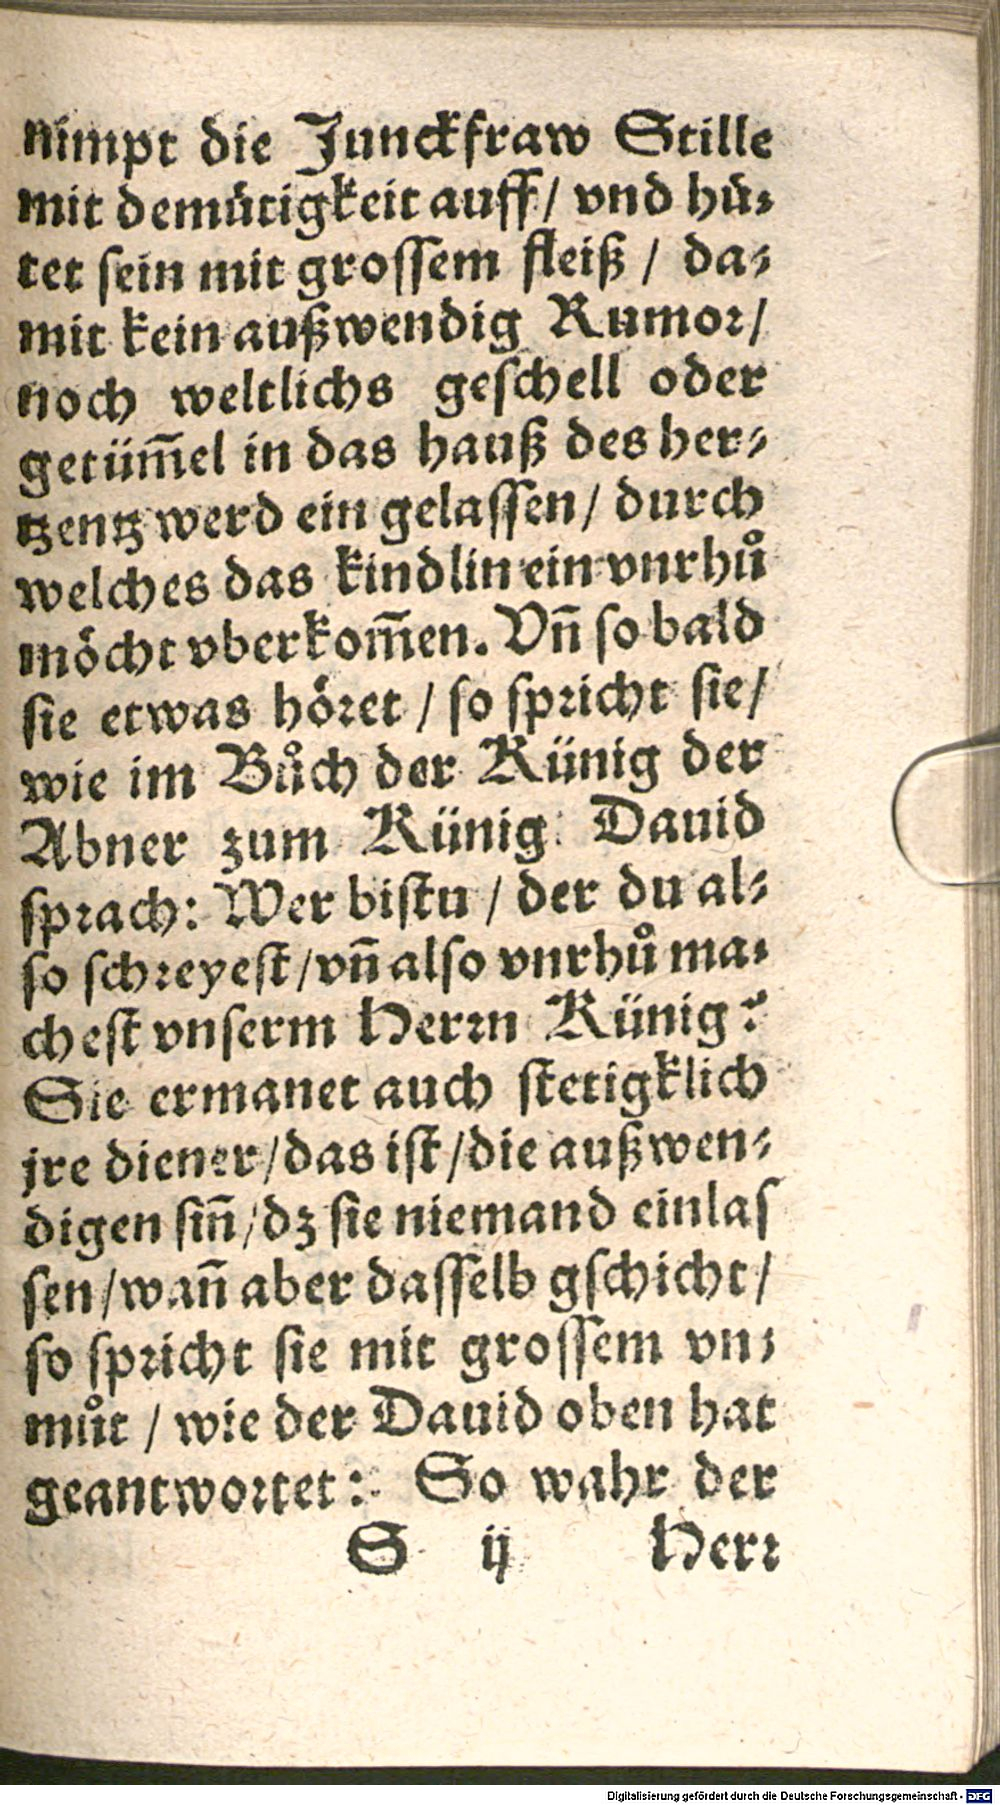 nimpt die Junckfraw Stille
mit demuͤtigkeit auff/ vnd huͤ-
tet sein mit grossem fleiß / da-
mit kein außwendig Rumor/
noch weltlichs geschell oder
getüm̃el in das hauß des her-
tzentz werd ein gelassen/ durch
welches das kindlin ein vnrhů
moͤcht vberkom̃en. Vñ so bald
sie etwas hoͤret / so spricht sie/
wie im Bůch der Künig der
Abner zum Künig Dauid
sprach: Wer bistu / der du al-
so schreyest/vñ also vnrhů ma-
chest vnserm Herrn Künig?
Sie ermanet auch stetigklich
jre diener/das ist/die außwen-
digen siñ/dz sie niemand einlas
sen/wañ aber dasselb gschicht/
so spricht sie mit grossem vn-
můt / wie der Dauid oben hat
geantwortet: So wahr der
S ij Herr
Digitalisierung gefördert durch die Deutsche Forschungsgemeinschaft - DFG